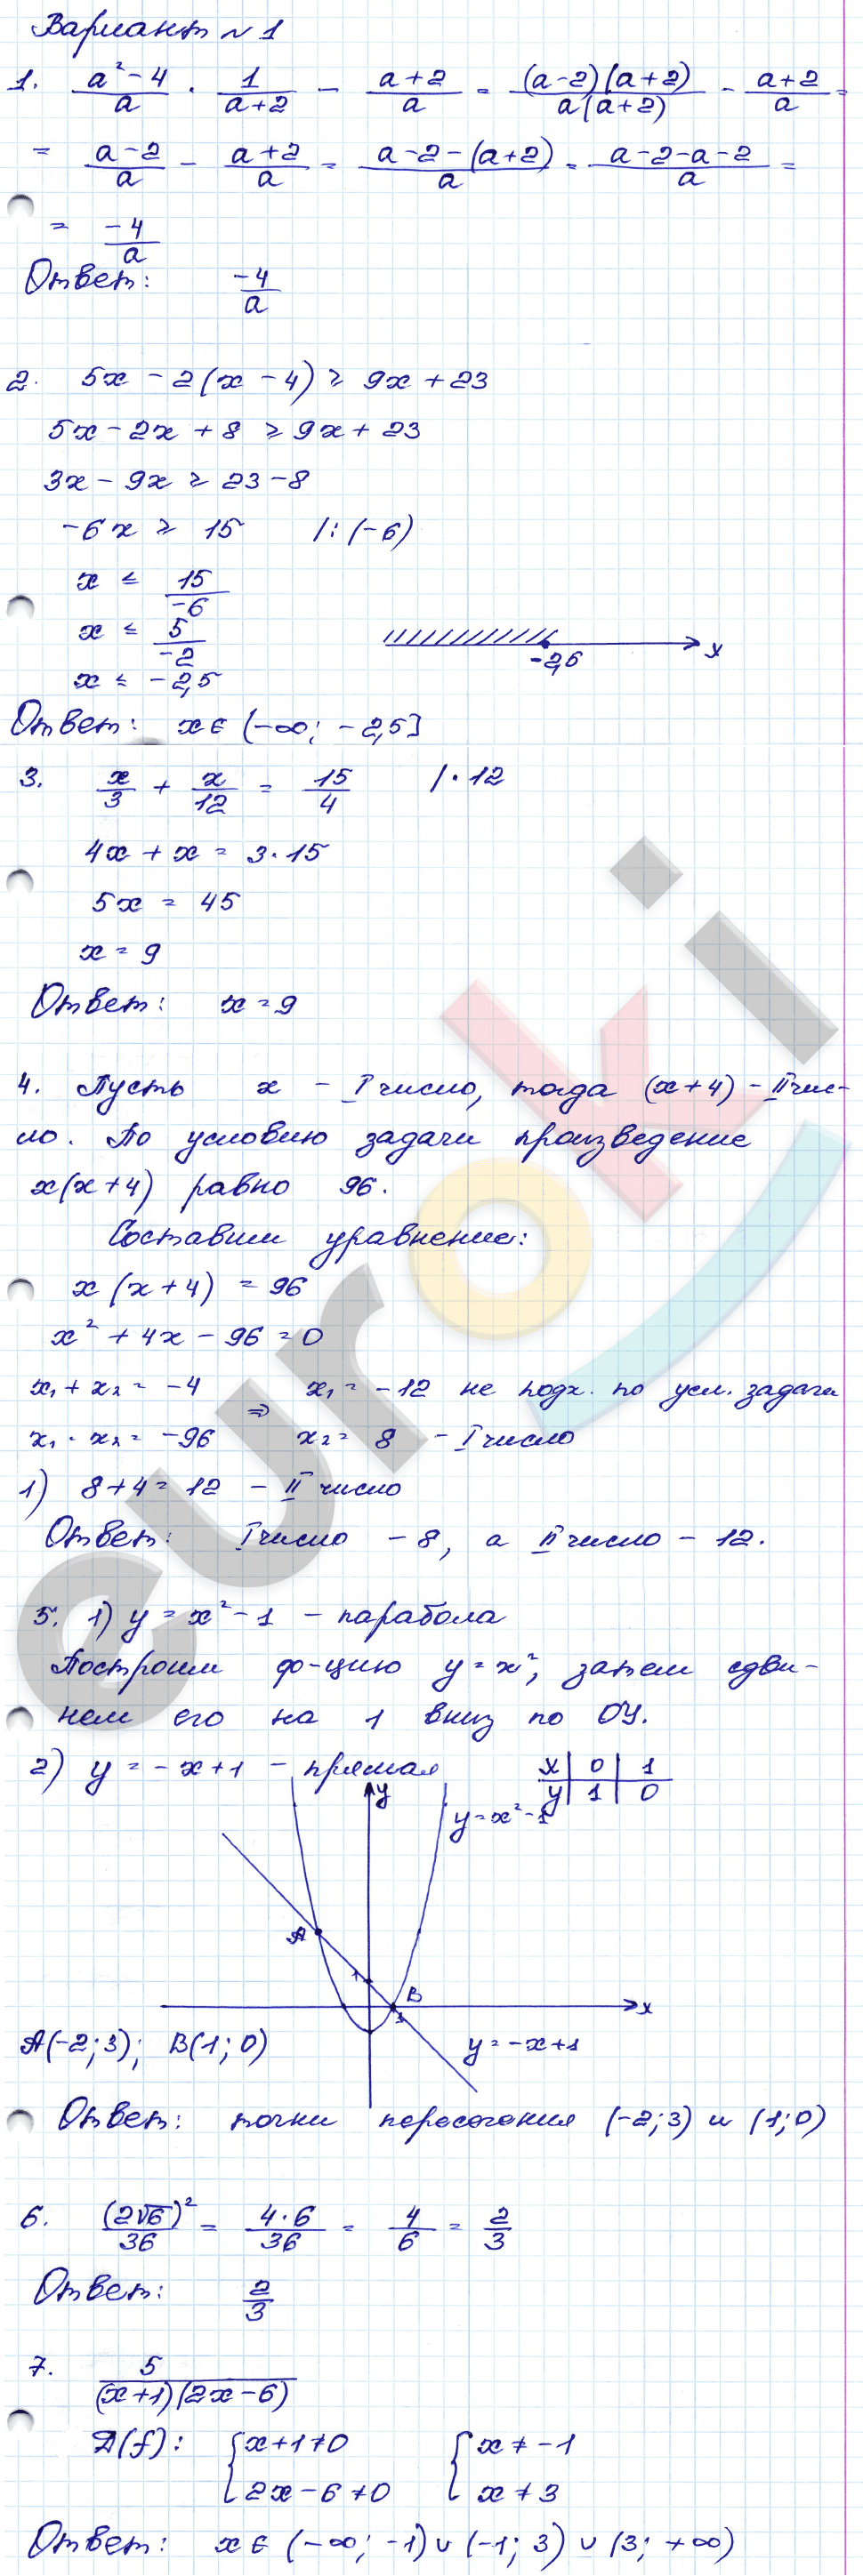 Вариант №1
1. (a²-4)/a · 1/(a+2) - (a+2)/a = (a-2)(a+2)/a(a+2) - (a+2)/a =
= (a-2)/a - (a+2)/a = (a-2-(a+2))/a = (a-2-a-2)/a =
= -4/a
Ответ: -4/a
2. 5x - 2(x - 4) ≥ 9x + 23
5x - 2x + 8 ≥ 9x + 23
3x - 9x ≥ 23 - 8
-6x ≥ 15 /:(-6)
x ≤ 15/-6
x ≤ 5/-2
x ≤ -2,5
-2,5 x
Ответ: x ∈ (-∞; -2,5]
3. x/3 + x/12 = 15/4 /·12
4x + x = 3·15
5x = 45
x = 9
Ответ: x = 9
4. Пусть x - I число, тогда (x+4) - II чис-
ло. По условию задачи произведение
x(x+4) равно 96.
Составим уравнение:
x(x+4) = 96
x² + 4x - 96 = 0
x₁ + x₂ = -4 x₁ = -12 не подх. по усл. задачи
⇒
x₁ · x₂ = -96 x₂ = 8 - I число
1) 8+4=12 - II число
Ответ: I число - 8, а II число - 12.
5. 1) y = x² - 1 - парабола
Построим ф-цию y = x², затем сдви-
нем его на 1 вниз по OY.
2) y = -x+1 - прямая
x | 0 | 1
y | 1 | 0
y
y = x² - 1
A
1
B
1
x
A(-2; 3); B(1; 0)
y = -x+1
Ответ: точки пересечения (-2; 3) и (1; 0)
6. (2√6)²/36 = 4·6/36 = 4/6 = 2/3
Ответ: 2/3
7. 5/(x+1)(2x-6)
D(f): { x+1≠0 { x ≠ -1
2x-6≠0 x ≠ 3
Ответ: x ∈ (-∞; -1) ∪ (-1; 3) ∪ (3; +∞)
euroki